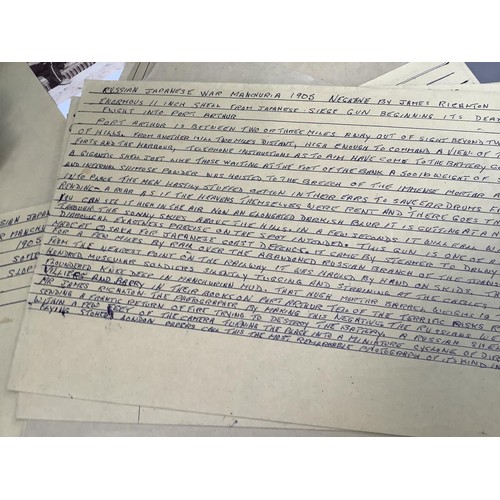 RUSSIAN JAPANESE WAR MANCHURIA 1905 NEGATIVE BY JAMES RICALTON
ENORMOUS 11 INCH SHELL FROM JAPANESE SIEGE GUN BEGINNING ITS DEA
FLIGHT INTO PORT ARTHUR
PORT ARTHUR IS BETWEEN TWO OR THREE MILES AWAY OUT OF SIGHT BEYOND TW
OF HILLS. FROM ANOTHER HILL TWO MILES DISTANT, HIGH ENOUGH TO COMMAND A VIEW OF
FORTS AND THE HARBOUR, TELEPHONE INSTRUCTIONS AS TO AIM HAVE COME TO THE BATTERY
A GIGANTIC SHELL JUST LIKE THOSE WAITING AT THE FOOT OF THE BANK A 500LB WEIGHT OF
AND INFERNAL SHIMOSE POWDER WAS HOISTED TO THE BREECH OF THE IMMENSE MORTAR
INTO PLACE THE MEN HASTILY STUFFED COTTON IN THEIR EARS TO SAVE EAR DRUMS F
RENDING A ROAR AS IF THE HEAVENS THEMSELVES WERE RENT AND THERE GOES T
YOU CAN SEE IT HIGH IN THE AIR NOW AN ELONGATED DARKISH BLUR IT IS CUTTING AT A
THROUGH THE SUNNY SKIES ABOVE THE HILLS. IN A FEW SECONDS IT WILL FALL
DIABOLICAL EXACTNESS PRECISE ON THE SPOT INTENDED. THIS GUN IS ONE OF
MADE AT OSAKA FOR JAPANESE COAST DEFENCE. IT CAME BY STEAMER TO DALNY
FOR A FEW MILES BY RAIL OVER THE ABANDONED RUSSIAN BRANCH OF THE TRANS
FROM THE NEAREST POINT ON THE RAILWAY IT WAS HAULED BY HAND ON SKIDS
HUNDRED MUSCULAR SOLDIERS SILENTLY TUGGING AND STRAINING AT THE CABLES
FOUNDERED KNEE DEEP IN MANCHURIAN MUD. THAT HUGH MORTAR BARREL WEIGHS 8
VILLIERS AND BARRY IN THEIR BOOKS ON PORT ARTHUR TELL OF THE TERRIFIC RISKS
MR JAMES RICALTON THE PHOTOGRAPHER BY MAKING THIS NEGATIVE THE RUSSIANS WE
SENDING A FRANTIC RETURN FIRE TRYING TO DESTROY THE BATTERY. A RUSSIAN SHE
WITHIN FEET OF THE CAMERA TURNING THE PLACE INTO A MINIATURE CYCLONE OF
FLYING STONES LONDON PAPERS CALL THIS THE MOST REMARKABLE PHOTOGRAPH OF ITS KIND IN
SSIAN JAPA
R MANCH
1905
SOFIE
SLOP